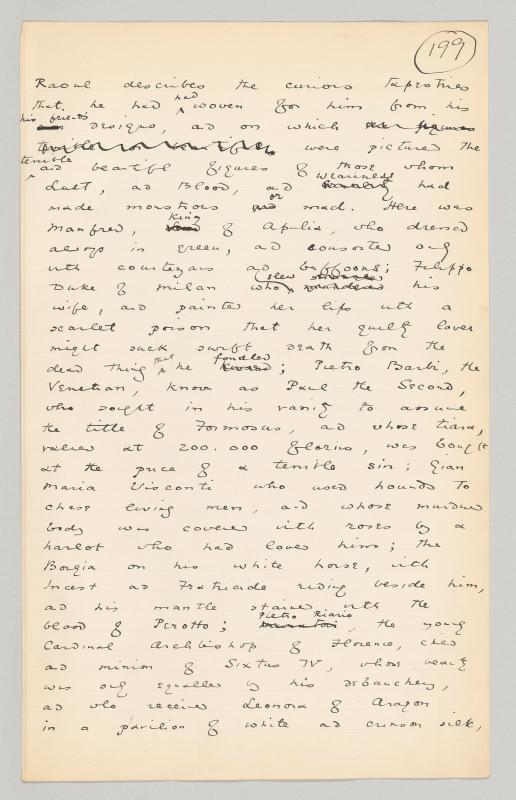 199
Raoul describes the curious tapestries
that he had had woven for him from his
his friend's designs, and on which were pictured the
terrible and beautiful figures of those whom
Lust, and Blood, and weariness had
made monstrous or mad. Here was
Manfred, King of Apulia, who dressed
always in green, and consorted only
with courtezans and buffoons; Filippo
Duke of Milan who slew his
wife, and painted her lips with a
scarlet poison that her guilty lover
might suck swift death from the
dead thing that he fondled; Pietro Barbi, the
Venetian, known as Paul the Second,
who sought in his vanity to assume
the title of Formosus, and whose tiara,
valued at 200.000 florins, was bought
at the price of a terrible sin; Gian
Maria Visconti who used hounds to
chase living men, and whose murdered
body was covered with roses by a
harlot who had loved him; the
Borgia on his white horse, with
Incest and Fratricide riding beside him,
and his mantle stained with the
blood of Perotto; Pietro Riario, the young
Cardinal Archbishop of Florence, child
and minion of Sixtus IV, whose beauty
was only equalled by his debauchery,
and who received Leonora of Aragon
in a pavilion of white and crimson silk,